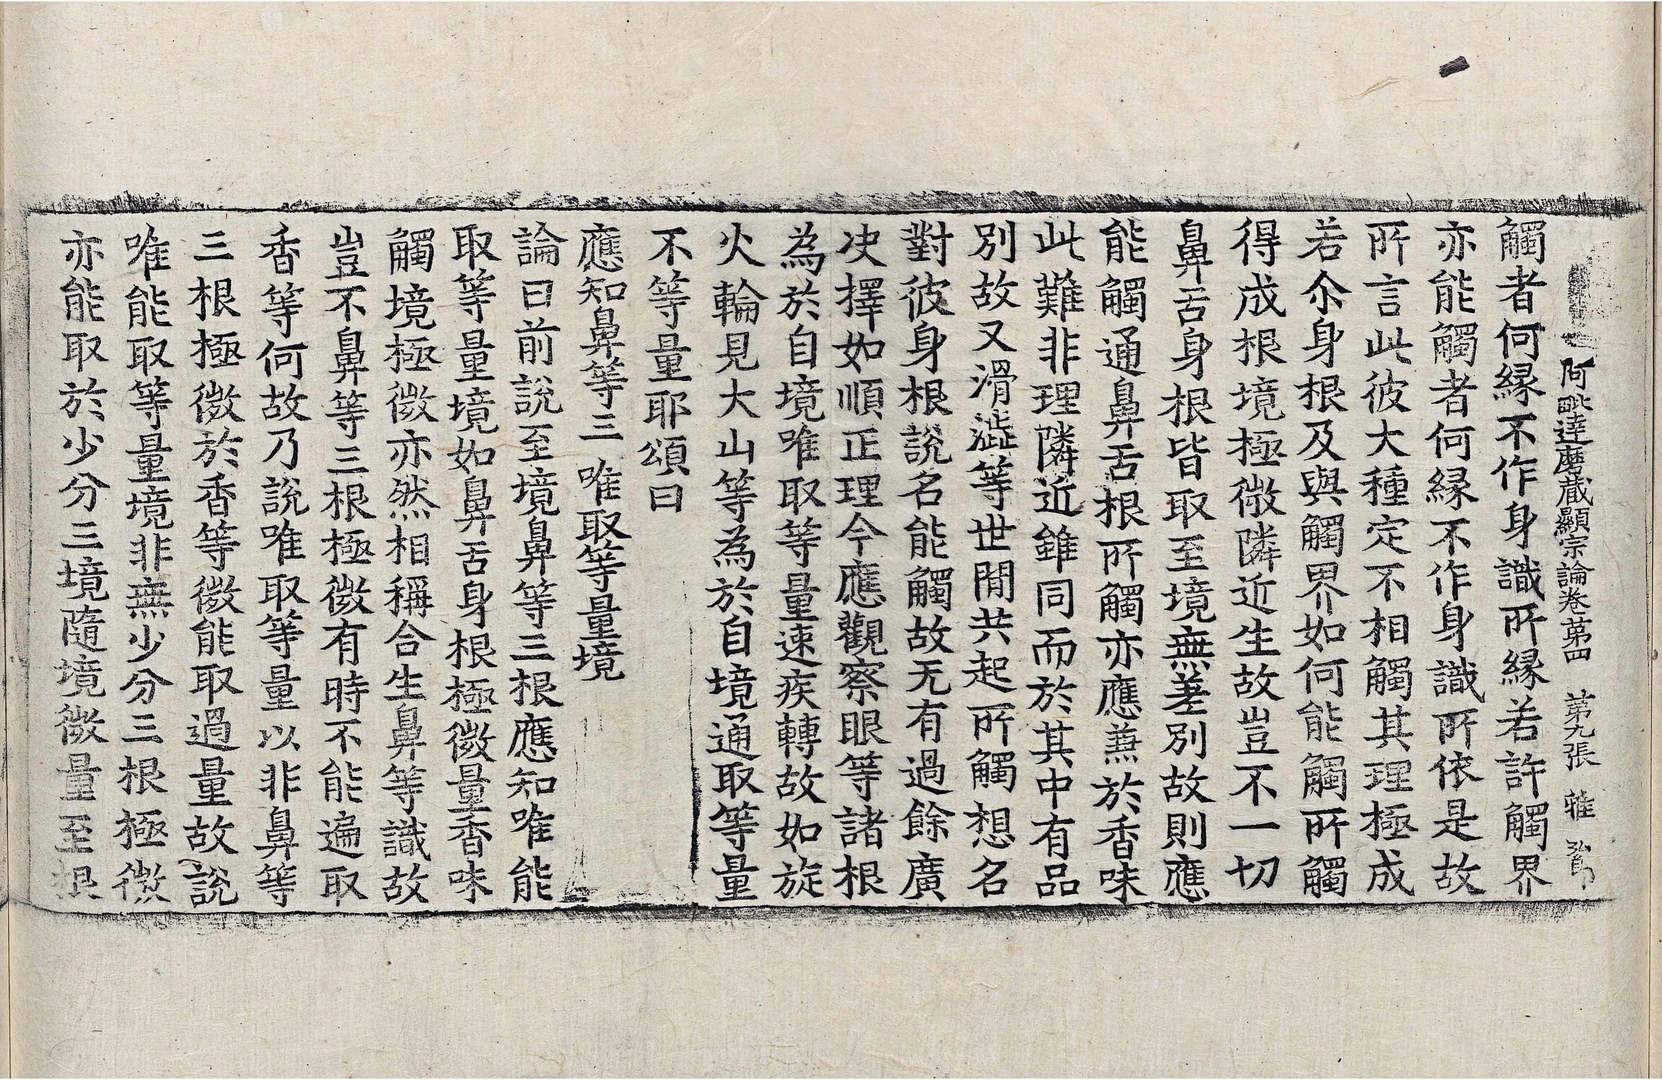 阿毗達磨蔵顯宗論卷苐四　苐九張　雅
觸者何緣不作身識所緣若許觸界
亦能觸者何緣不作身識所依是故
所言此彼大種定不相觸其理極成
若尒身根及與觸界如何能觸所觸
得成根境極微隣近生故豈不一切
鼻舌身根皆取至境無差別故則應
能觸通鼻舌根所觸亦應兼於香味
此難非理隣近雖同而於其中有品
別故又滑澁等世間共起所觸想名
對彼身根說名能觸故无有過餘廣
決擇如順正理今應觀察眼等諸根
為於自境唯取等量速疾轉故如旋
火輪見大山等為於自境通取等量
不等量耶頌曰
應知鼻等三　唯取等量境
論曰前說至境鼻等三根應知唯能
取等量境如鼻舌身根極微量香味
觸境極微亦然相稱合生鼻等識故
豈不鼻等三根極微有時不能遍取
香等何故乃說唯取等量以非鼻等
三根極微於香等微能取過量故說
唯能取等量境非無少分三根極微
亦能取於少分三境隨境微量至根